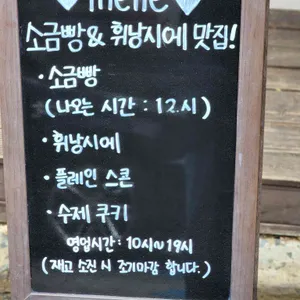 소금빵 & 휘낭시에 맛집!
· 소금빵
(나오는 시간 : 12시)
· 휘낭시에
· 플레인 스콘
· 수제 쿠키
영업시간 : 10시~19시
(재고 소진 시 조기마감 합니다.)